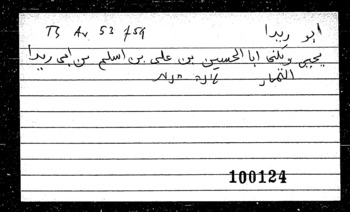 TS Ar 53 f59 ابو ريدا
يحيى ويكنى ابا الحسين بن على بن اسلم بن ابى ريدا
التمار
100124